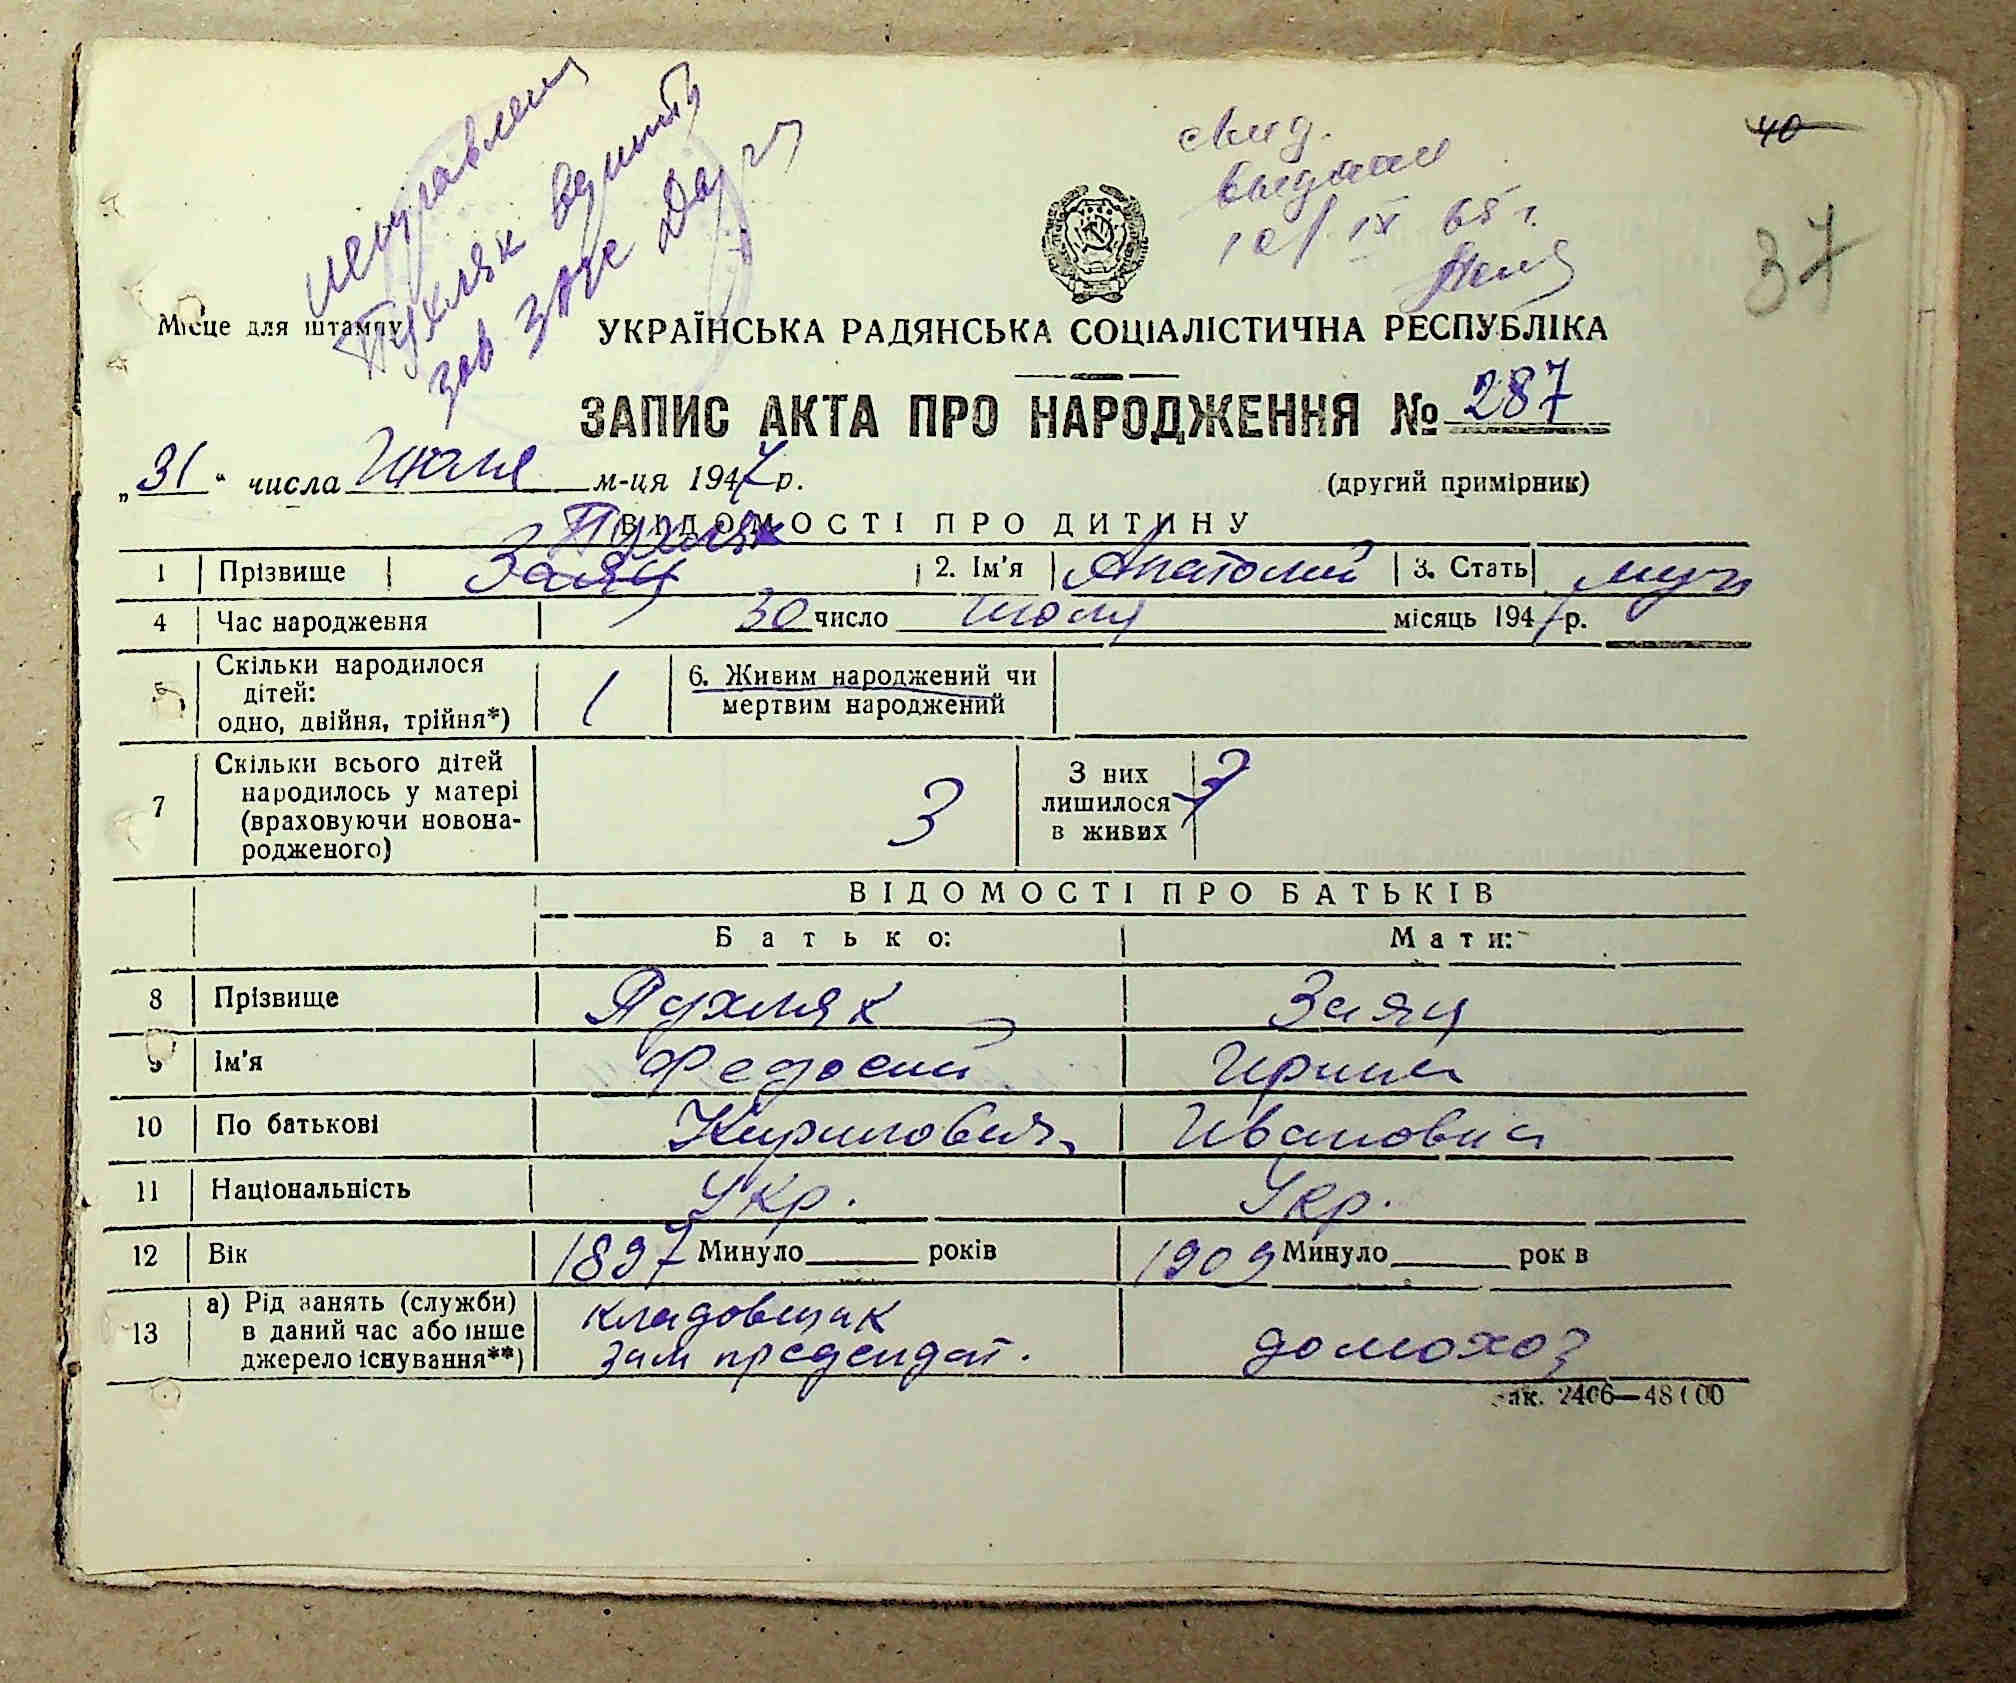 исправления
Пухляк
зав загс
выдан
10/IX 65 г.
40
37
Місце для штампу
УКРАЇНСЬКА РАДЯНСЬКА СОЦІАЛІСТИЧНА РЕСПУБЛІКА
ЗАПИС АКТА ПРО НАРОДЖЕННЯ № 287
„31“ числа Июля м-ця 1947 р.
(другий примірник)
ВІДОМОСТІ ПРО ДИТИНУ
Пухляк
1 Прізвище Заяц 2. Ім'я Анатолий 3. Стать муж
4 Час народження 30 число июля місяць 1947 р.
5 Скільки народилося
дітей:
одно, двійня, трійня*) 1
6. Живим народжений чи
мертвим народжений
7 Скільки всього дітей
народилось у матері
(враховуючи новона-
родженого) 3
З них
лишилося
в живих
ВІДОМОСТІ ПРО БАТЬКІВ
Батько: Мати:
8 Прізвище Пухляк Заяц
9 Ім'я Федосий Ирина
10 По батькові Кирилович Ивановна
11 Національність Укр. Укр.
12 Вік 1897 Минуло років 1909 Минуло рок в
13 а) Рід занять (служби)
в даний час або інше
джерело існування**)
кладовщик
зам председат.
домохоз
ак. 2406—48100